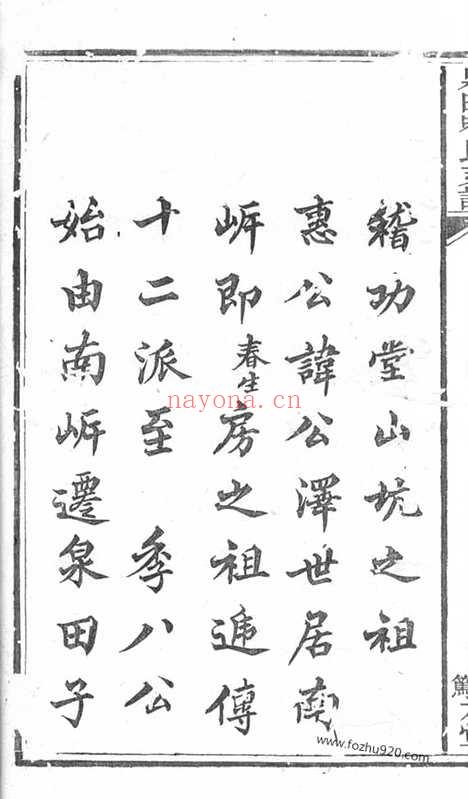 稽功堂山坑之祖
惠公諱公澤世居南
岍即春生房之祖遞傳
十二派至　季八公
始由南岍遷泉田子
nayona.cn
www.fozhu920.com